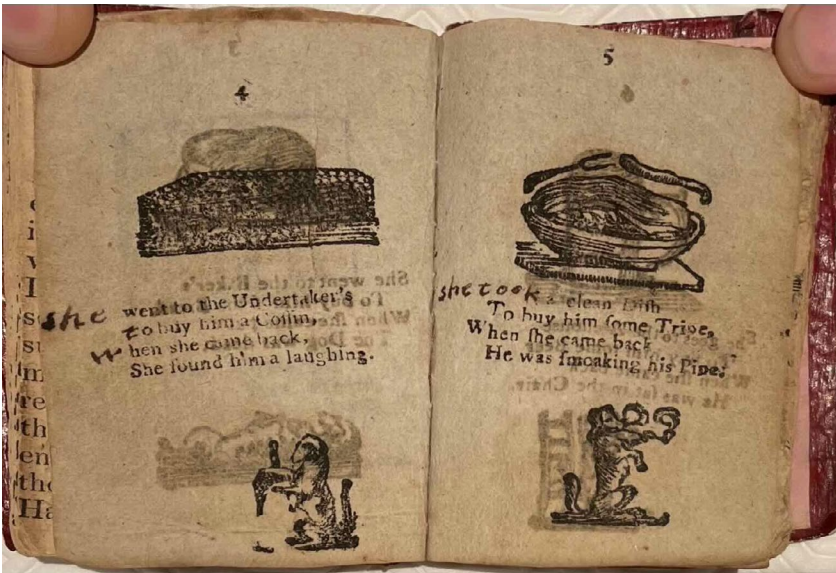 4
she went to the Undertaker's
To buy him a Coffin,
When she came back,
She found him a laughing.
5
she took a clean Dish
To buy him ſome Tripe,
When ſhe came back
He was ſmoaking his Pipe;